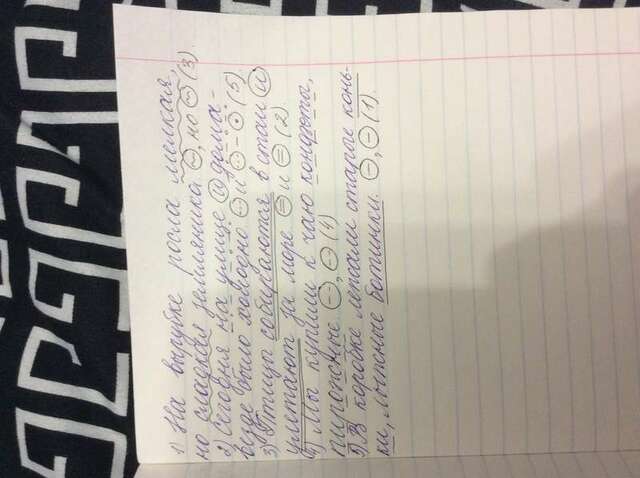 1) На вырубке росла мелкая,
но сладкая земляника ⊖, но ⊖ (3).
2) Сегодня на улице и дома -
везде было холодно. ⊖ и ⊖ - ⊙ (5)
3) Птицы собираются в стаи и
улетают за море ⊜ и ⊜ (2).
4) Мы купили к чаю конфеты,
пирожные ⊖, ⊖ (1)
5) В коробке лежали старые конь-
ки, лыжные ботинки. ⊖, ⊖ (1).